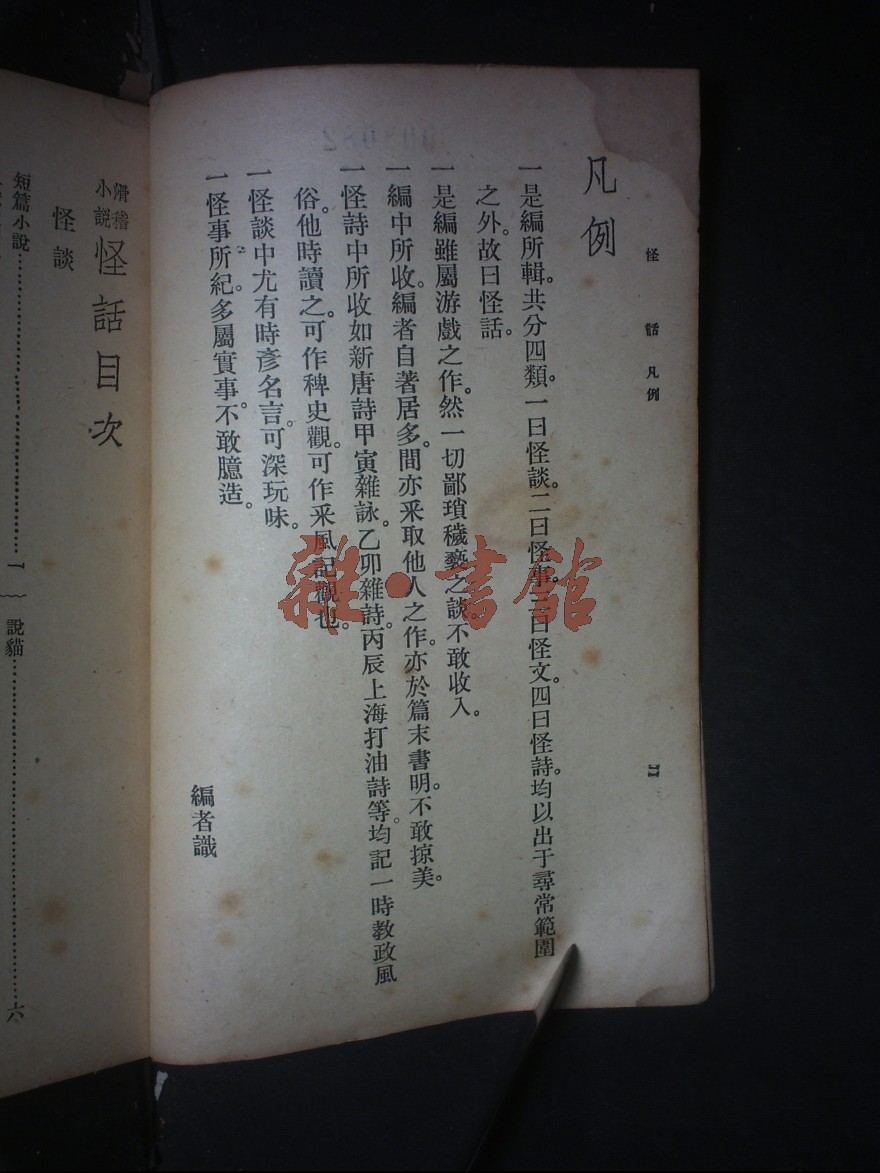 怪話 凡例
二
凡例
一是編所輯。共分四類。一曰怪談。二曰怪事。三曰怪文。四曰怪詩。均以出于尋常範圍
之外。故曰怪話。
一是編雖屬游戲之作。然一切鄙瑣穢褻之談。不敢收入。
一編中所收。編者自著居多。間亦采取他人之作。亦於篇末書明。不敢掠美。
一怪詩中所收如新唐詩甲寅雜詠。乙卯雜詩。丙辰上海打油詩等。均記一時教政風
俗。他時讀之。可作稗史觀。可作采風記觀也。
一怪談中尤有時彥名言。可深玩味。
一怪事所紀。多屬實事。不敢臆造。
編者識
滑稽小說 怪話目次
怪談
短篇小說……一
說貓……六
雜·書館